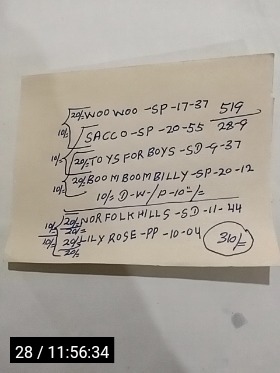 20/= WOO WOO -SP-17-37 519
10/= SACCO-SP-20-55 28-9
10/= 20/= TOYS FOR BOYS-SD-9-37
10/= 20/= BOOM BOOM BILLY-SP-20-12
10/= D-W-/P-10=/=
10/= 20/= 20/= NORFOLK HILLS-SD-11-44
10/= 20/= 20/= LILY ROSE-PP-10-04 310/=
28 / 11:56:34